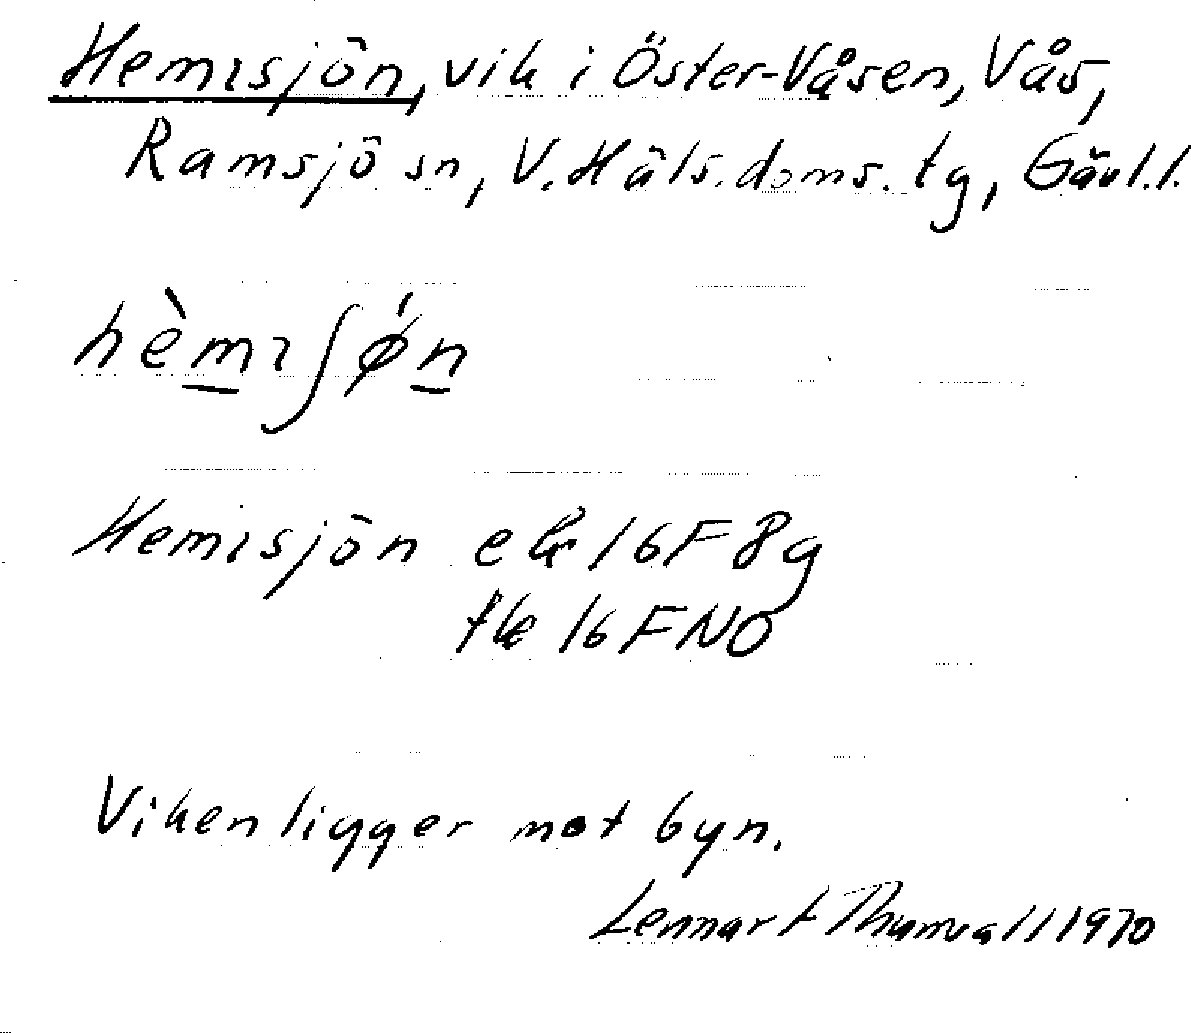 Hemısjön, vik i Öster-Våsen, Vås,
Ramsjö sn, V. Häls. doms. tg, Gävl. l.
hèmıʃǿn
Hemısjön ek 16F8g
tk 16FNO
Viken ligger mot byn.
Lennart Thunvall 1970